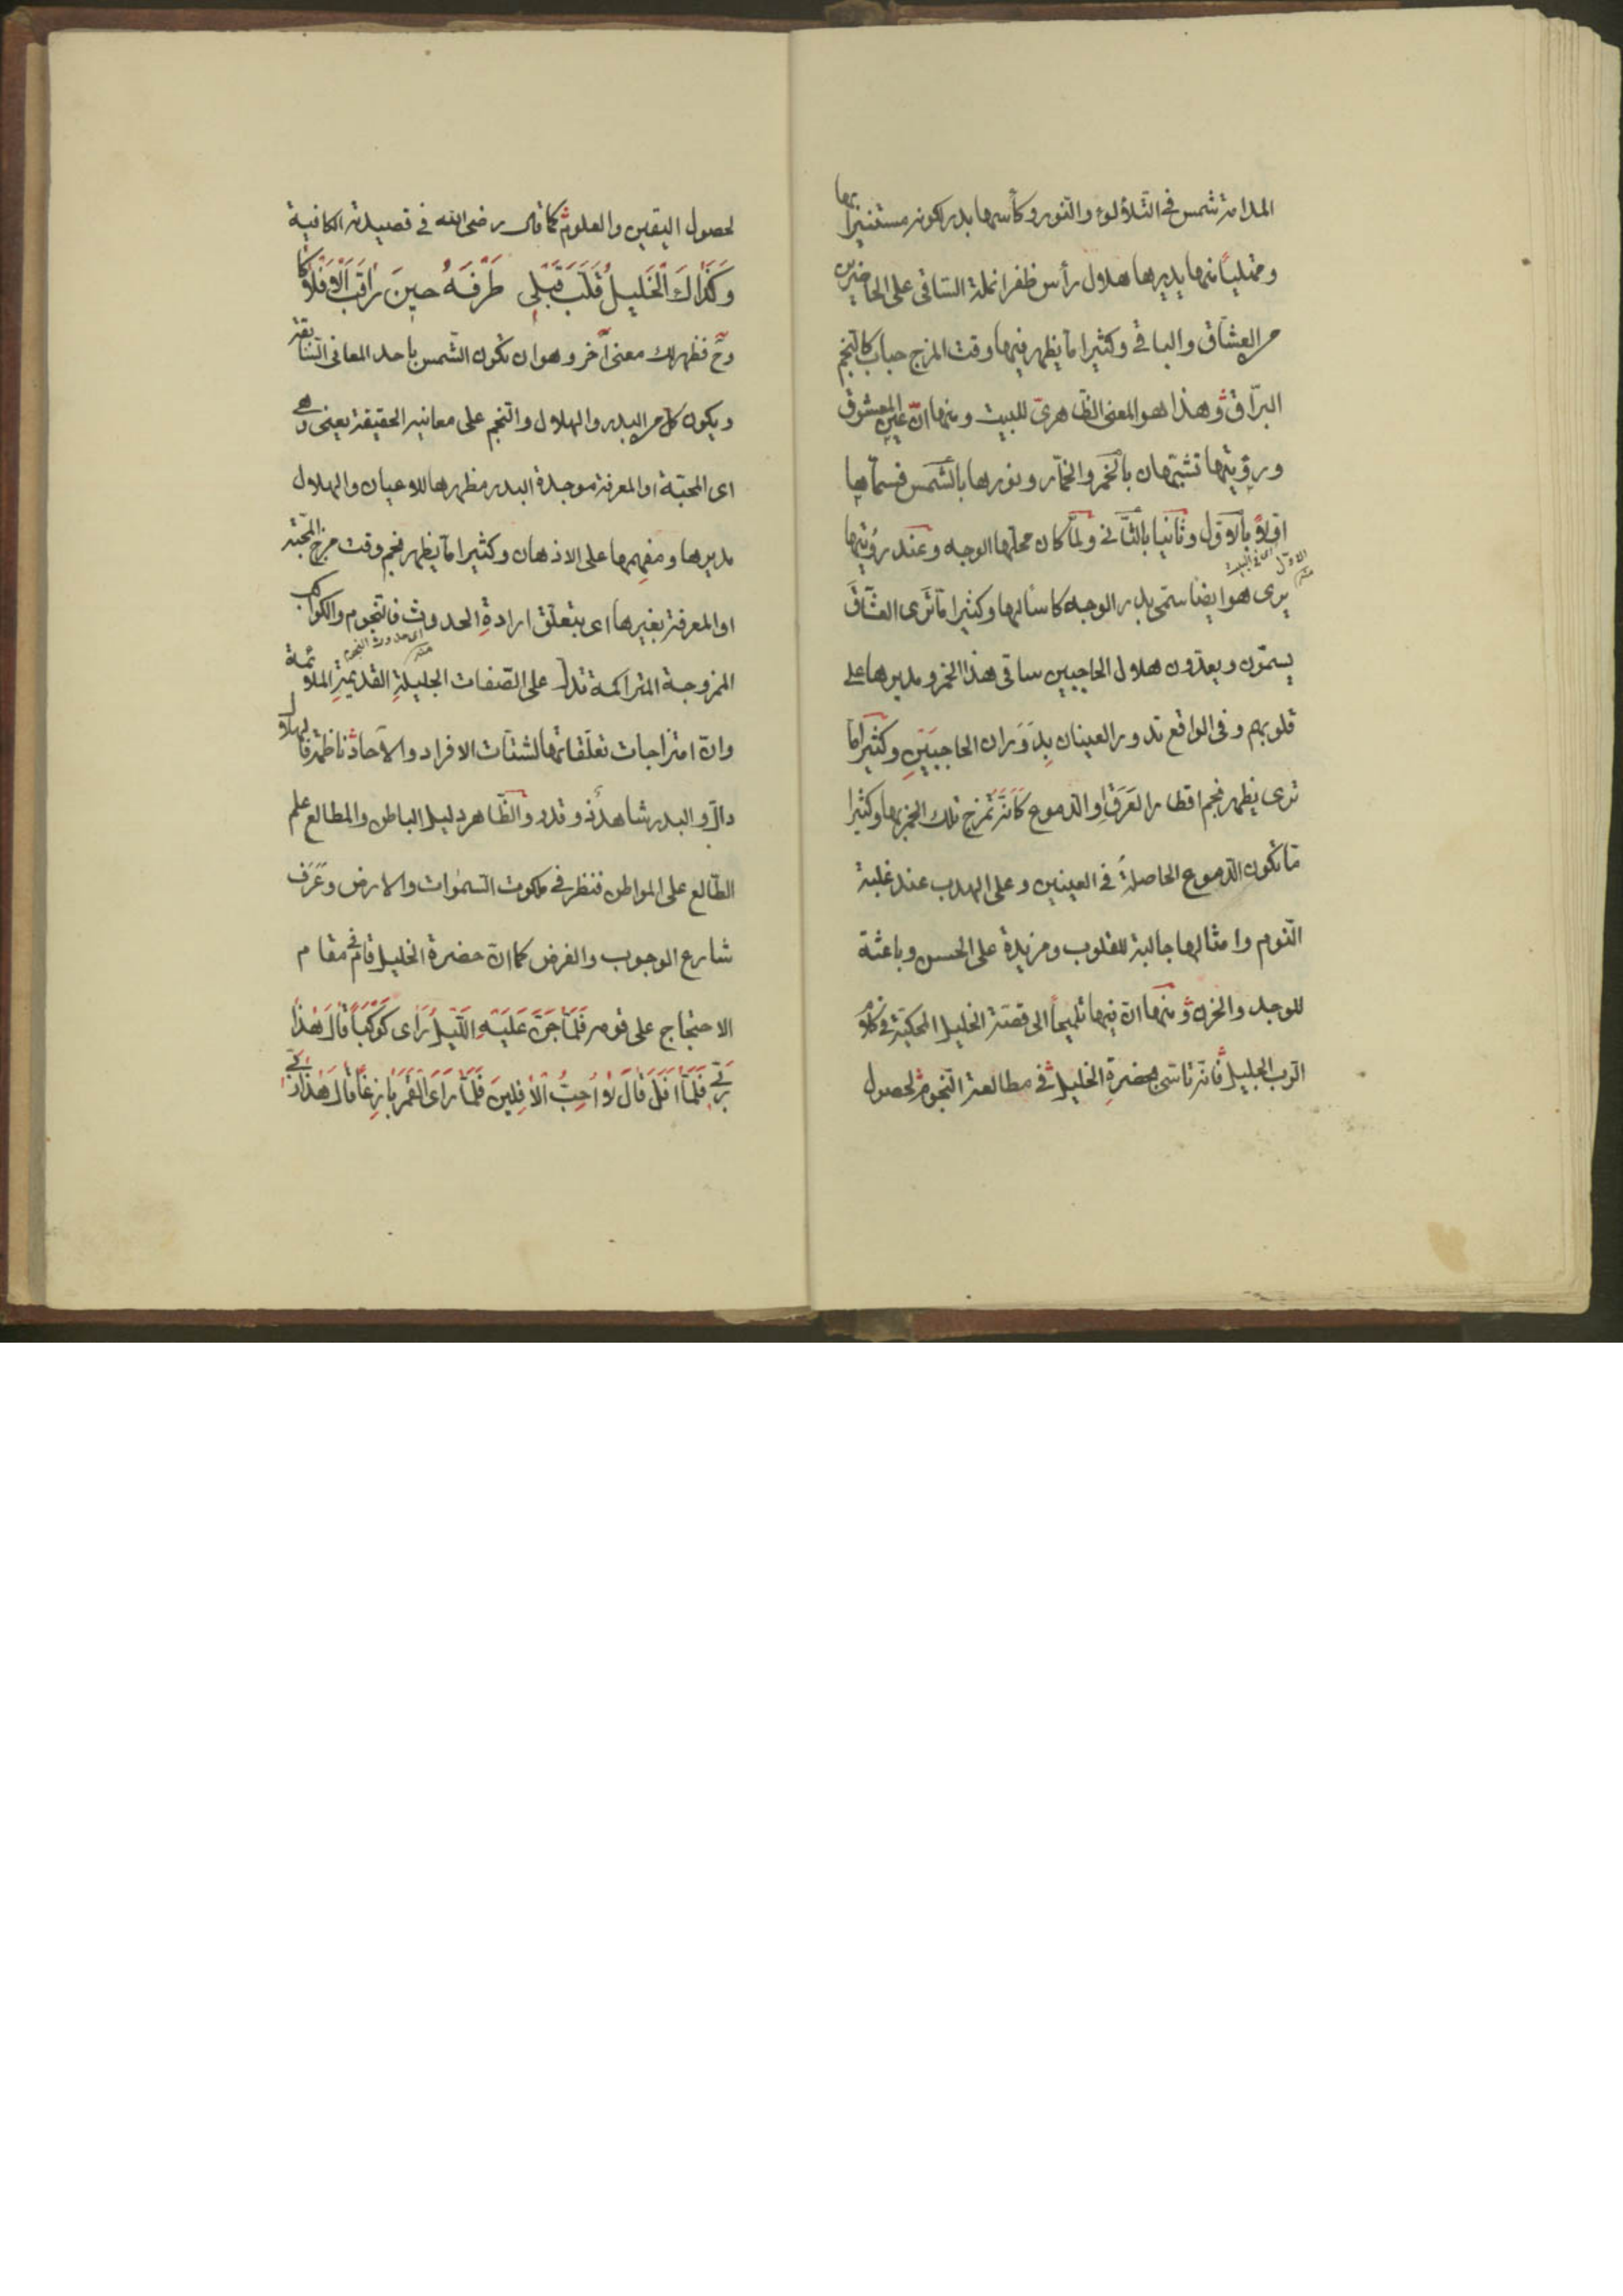 المدامة شمس في التلألؤ والتنور وكأسها بدر لكونه مستنيرا بها
وممتليًا منها يديرها هلال رأس ظفر انملة الساقى على الحاضرين
من العشاق والباقي وكثيرا ما يظهر فيها وقت المزج حباب كالنجم
البرّاق وهذا هو المعنى الظاهري للبيت ومنها انّ عين المعشوق
ورؤيتها تشبّهان بالخمر والخمّار ونورها بالشمس فسمّاها
اوّلا بالاوّل وثانيا بالثّاني ولمّا كان محلّها الوجه وعند رؤيتها
الاوّل في البيت
يرى هو ايضا سمّى بدر الوجه كاسا لها وكثيرا ما ترى العشّاق
يسمّون ويعدّون هلال الحاجبين ساقى هذا الخمر ومديرها على
قلوبهم وفي الواقع تدور العينان بِدَوَران الحاجبَينِ وكثيرًا ما
ترى يظهر نجم اقطار العَرَقِ او الدموع كَانّه تمزج تلك الخمر بها وكثيرا
ما تكون الدموع الحاصلةُ في العينين وعلى الهدب عند غلبة
النوم وامثالها جالبة للقلوب ومزيدة على الحسن وباعثة
للوجد والحزن ومنها ان فيها تلميحًا الى قصّة الخليل المحكيّة في كلام
الرب الجليل فانّه تأسّى بحضرة الخليل في مطالعة النجوم لحصول
لحصول اليقين والعلوم كما قال رضى الله في قصيدته الكافية
وَكَذَاكَ الْخَلِيلُ قَلَّبَ قَبْلِى طَرْفَهُ حينَ رَاقَبَ الْاَفْلَاكَا
وح فظهر لك معنى آخر وهو ان تكون الشّمس باحد المعانى السّابقة
ويكون كلّ من البدر والهلال والنّجم على معانيه الحقيقة يعنى وهى
اى المحبّة او المعرفة موجدة البدر مظهرها للاعيان والهلال
مديرها ومفهمها على الاذهان وكثيرا ما يظهر نجم وقت مزج المحبّة
او المعرفة بغيرها اى بتعلّق ارادةِ الحدوث فالنجوم والكواكب
اى حدوث النجم
الممزوجة المتراكمة تدل على الصّفات الجليلةِ القديمةِ الملائمة
وانّ امتزاجات تعلّقاتها لشتّات الافراد والآحاد ناظمة فالهلال
دالّ والبدر شاهد والظّاهر دليل الباطن والمطالع علم
الطّالع على المواطن فنظر في ملكوت السّموات والارض وعَرَف
شارع الوجوب والفرض كما انّ حضرة الخليل قام في مقام
الاحتجاج على قومه فَلَمَّا جَنَّ عَلَيْهِ اللَّيْلُ رَاى كَوْكَبًا قَالَ هٰذَا
رَبّى فَلَمَّا اَفَلَ قَالَ لَا اُحِبُّ الْاٰفِلِينَ فَلَمَّا رَاَى الْقَمَرَ بَازِغًا قَالَ هٰذَا رَبّى